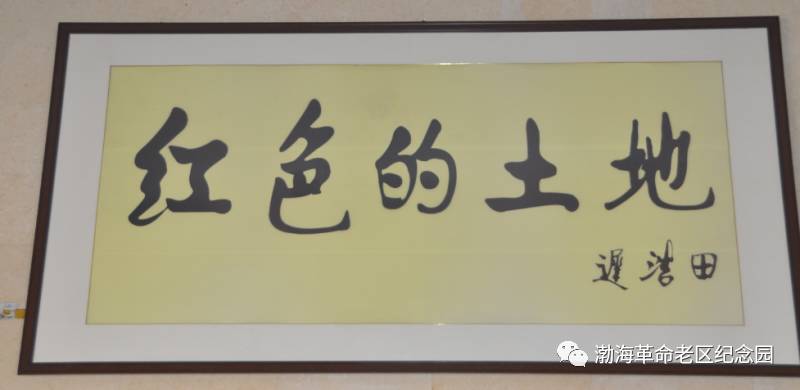 红色的土地
遲浩田
渤海革命老区纪念园